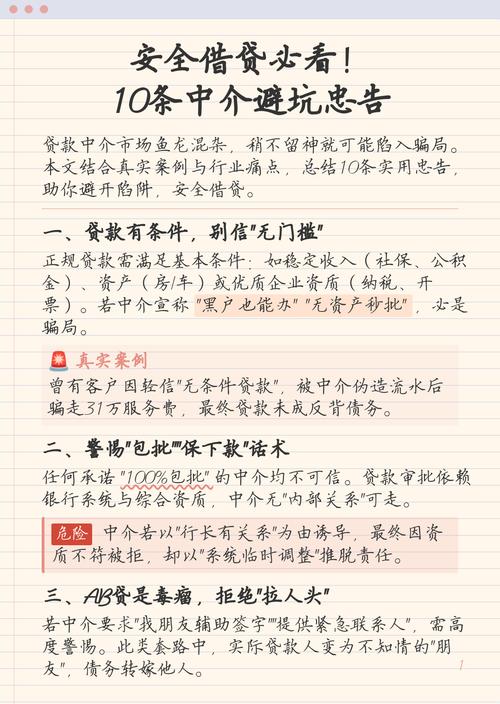 安全借贷必看！
10条中介避坑忠告
贷款中介市场鱼龙混杂，稍不留神就可能陷入骗局。
本文结合真实案例与行业痛点，总结10条实用忠告，
助你避开陷阱，安全借贷。
一、贷款有条件，别信"无门槛"
正规贷款需满足基本条件：如稳定收入（社保、公积
金）、资产（房/车）或优质企业资质（纳税、开
票）。若中介宣称"黑户也能办""无资产秒批"，必是
骗局。
真实案例
曾有客户因轻信"无条件贷款"，被中介伪造流水后
骗走31万服务费，最终贷款未成反背债务。
二、警惕"包批""保下款"话术
任何承诺"100%包批"的中介均不可信。贷款审批依赖
银行系统与综合资质，中介无"内部关系"可走。
危险 中介若以"行长有关系"为由诱导，最终因资
质不符被拒，却以"系统临时调整"推脱责任。
三、AB贷是毒瘤，拒绝"拉人头"
若中介要求"找朋友辅助签字""提供紧急联系人"，需高
度警惕。此类套路中，实际贷款人变为不知情的"朋
友"，债务转嫁他人。
1